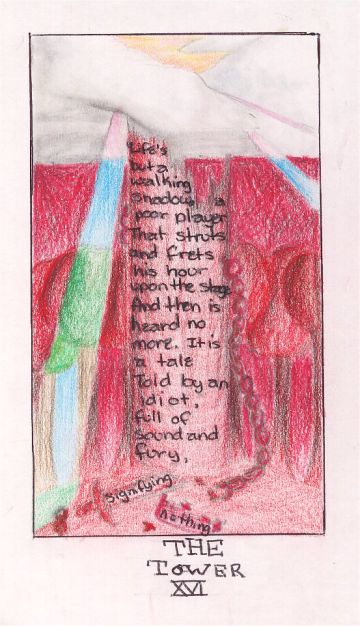 Life's
but a
walking
shadow, a
poor player
That struts
and frets
his hour
upon the stage
And then is
heard no
more. It is
a tale
Told by an
idiot,
full of
sound and
fury,
signifying
nothing
THE
TOWER
XVI